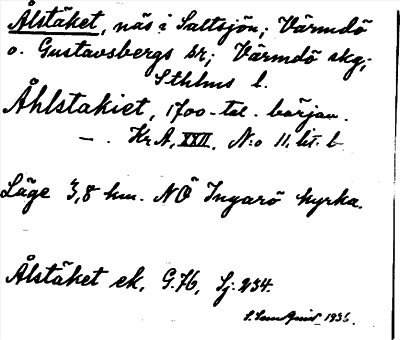 Ålstäket, näs i Saltsjön; Värmdö
o. Gustavsbergs sr; Värmdö skg;
Sthlms l.
Åhlstakiet, 1700-tal. början.
— . Kr A, XXII. N:o 11, lit. b
Läge 3,8 km. NÖ Ingarö kyrka.
Ålstäket ek. G. 76, Sj. 234.
1936.